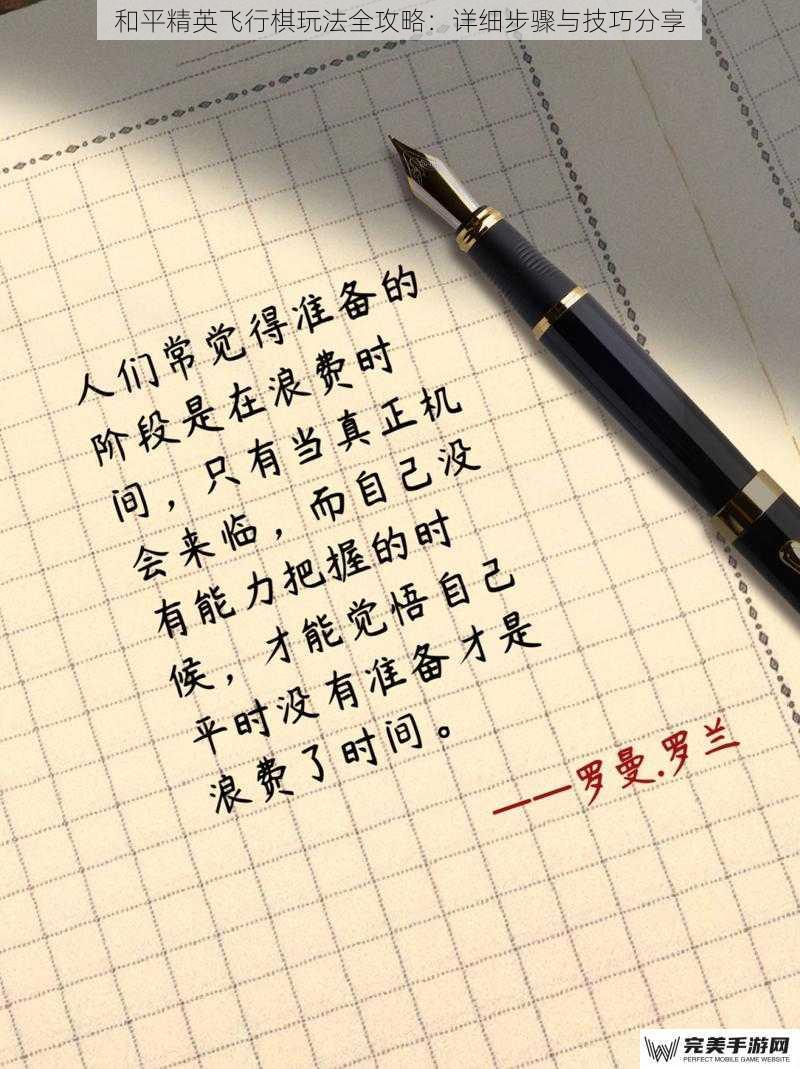 和平精英飞行棋玩法全攻略：详细步骤与技巧分享
人们常觉得准备的
阶段是在浪费时
间，只有当真正机
会来临，而自己没
有能力把握的时
候，才能觉悟自己
平时没有准备才是
浪费了时间。
——罗曼.罗兰
完美手游网
PERFECT MOBILE GAME WEBSITE